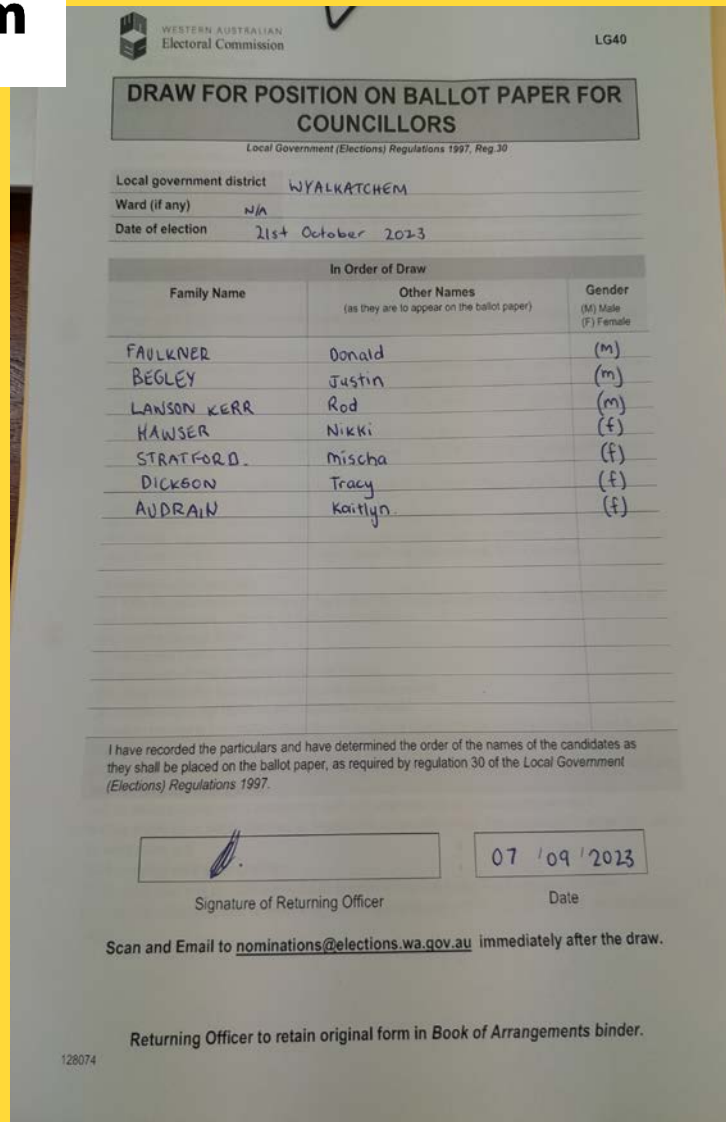 m
WESTERN AUSTRALIAN
Electoral Commission
LG40
DRAW FOR POSITION ON BALLOT PAPER FOR
COUNCILLORS
Local Government (Elections) Regulations 1997, Reg.30
Local government district WYALKATCHEM
Ward (if any) N/A
Date of election 21st October 2023
In Order of Draw
Family Name Other Names Gender
(as they are to appear on the ballot paper) (M) Male
(F) Female
FAULKNER Donald (m)
BEGLEY Justin (m)
LAWSON KERR Rod (m)
HAWSER Nikki (f)
STRATFORD. mischa (f)
DICKSON Tracy (f)
AUDRAIN Kaitlyn. (f)
I have recorded the particulars and have determined the order of the names of the candidates as
they shall be placed on the ballot paper, as required by regulation 30 of the Local Government
(Elections) Regulations 1997.
07 / 09 / 2023
Signature of Returning Officer Date
Scan and Email to nominations@elections.wa.gov.au immediately after the draw.
Returning Officer to retain original form in Book of Arrangements binder.
128074